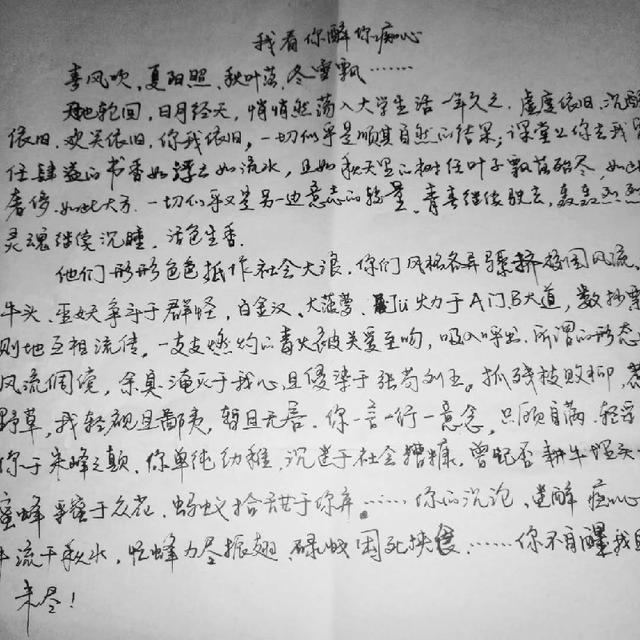 我看你醉你痴心
春风吹，夏阳照，秋叶落，冬雪飘……
天地轮回，日月经天，悄悄然荡入大学生活一年久之。虚度依旧，沉醉
依旧，欢笑依旧，你我依旧，一切似乎是顺其自然的结果；课堂上你去我
任肆益的书香如浮云如流水，且如秋天里的树任叶子飘落殆尽，如此
奢侈，如此大方。一切似乎又是另一边意志的较量，青春继续驶去，轰轰烈烈
灵魂继续沉睡，活色生香。
他们形形色色抵作社会大浪，你们风格各异骚挤校园风流。
牛头、巫妖争斗于群怪，白金汉、大菠萝、火力于A门B大道，数抄
则地互相流传，一支支燃灼的毒火被关爱至吻，吸入呼出，所谓的形态
风流倜傥，余臭淹灭于我心且侵染于张苟刘王。抓残枝败柳，
野草，我轻视且鄙夷，暂且无居。你一言一行一意念，只顾自满，轻
你于朱峰之颠，你单纯幼稚，沉迷于社会糟糠，曾记否耕牛埋头
蜜蜂争蜜于众花，蚂蚁拾于你弃……你的沉沦，迷醉痴心
牛流干秋水，忙蜂力尽振翅，碌蚁困死……你不自曝我
未尽！